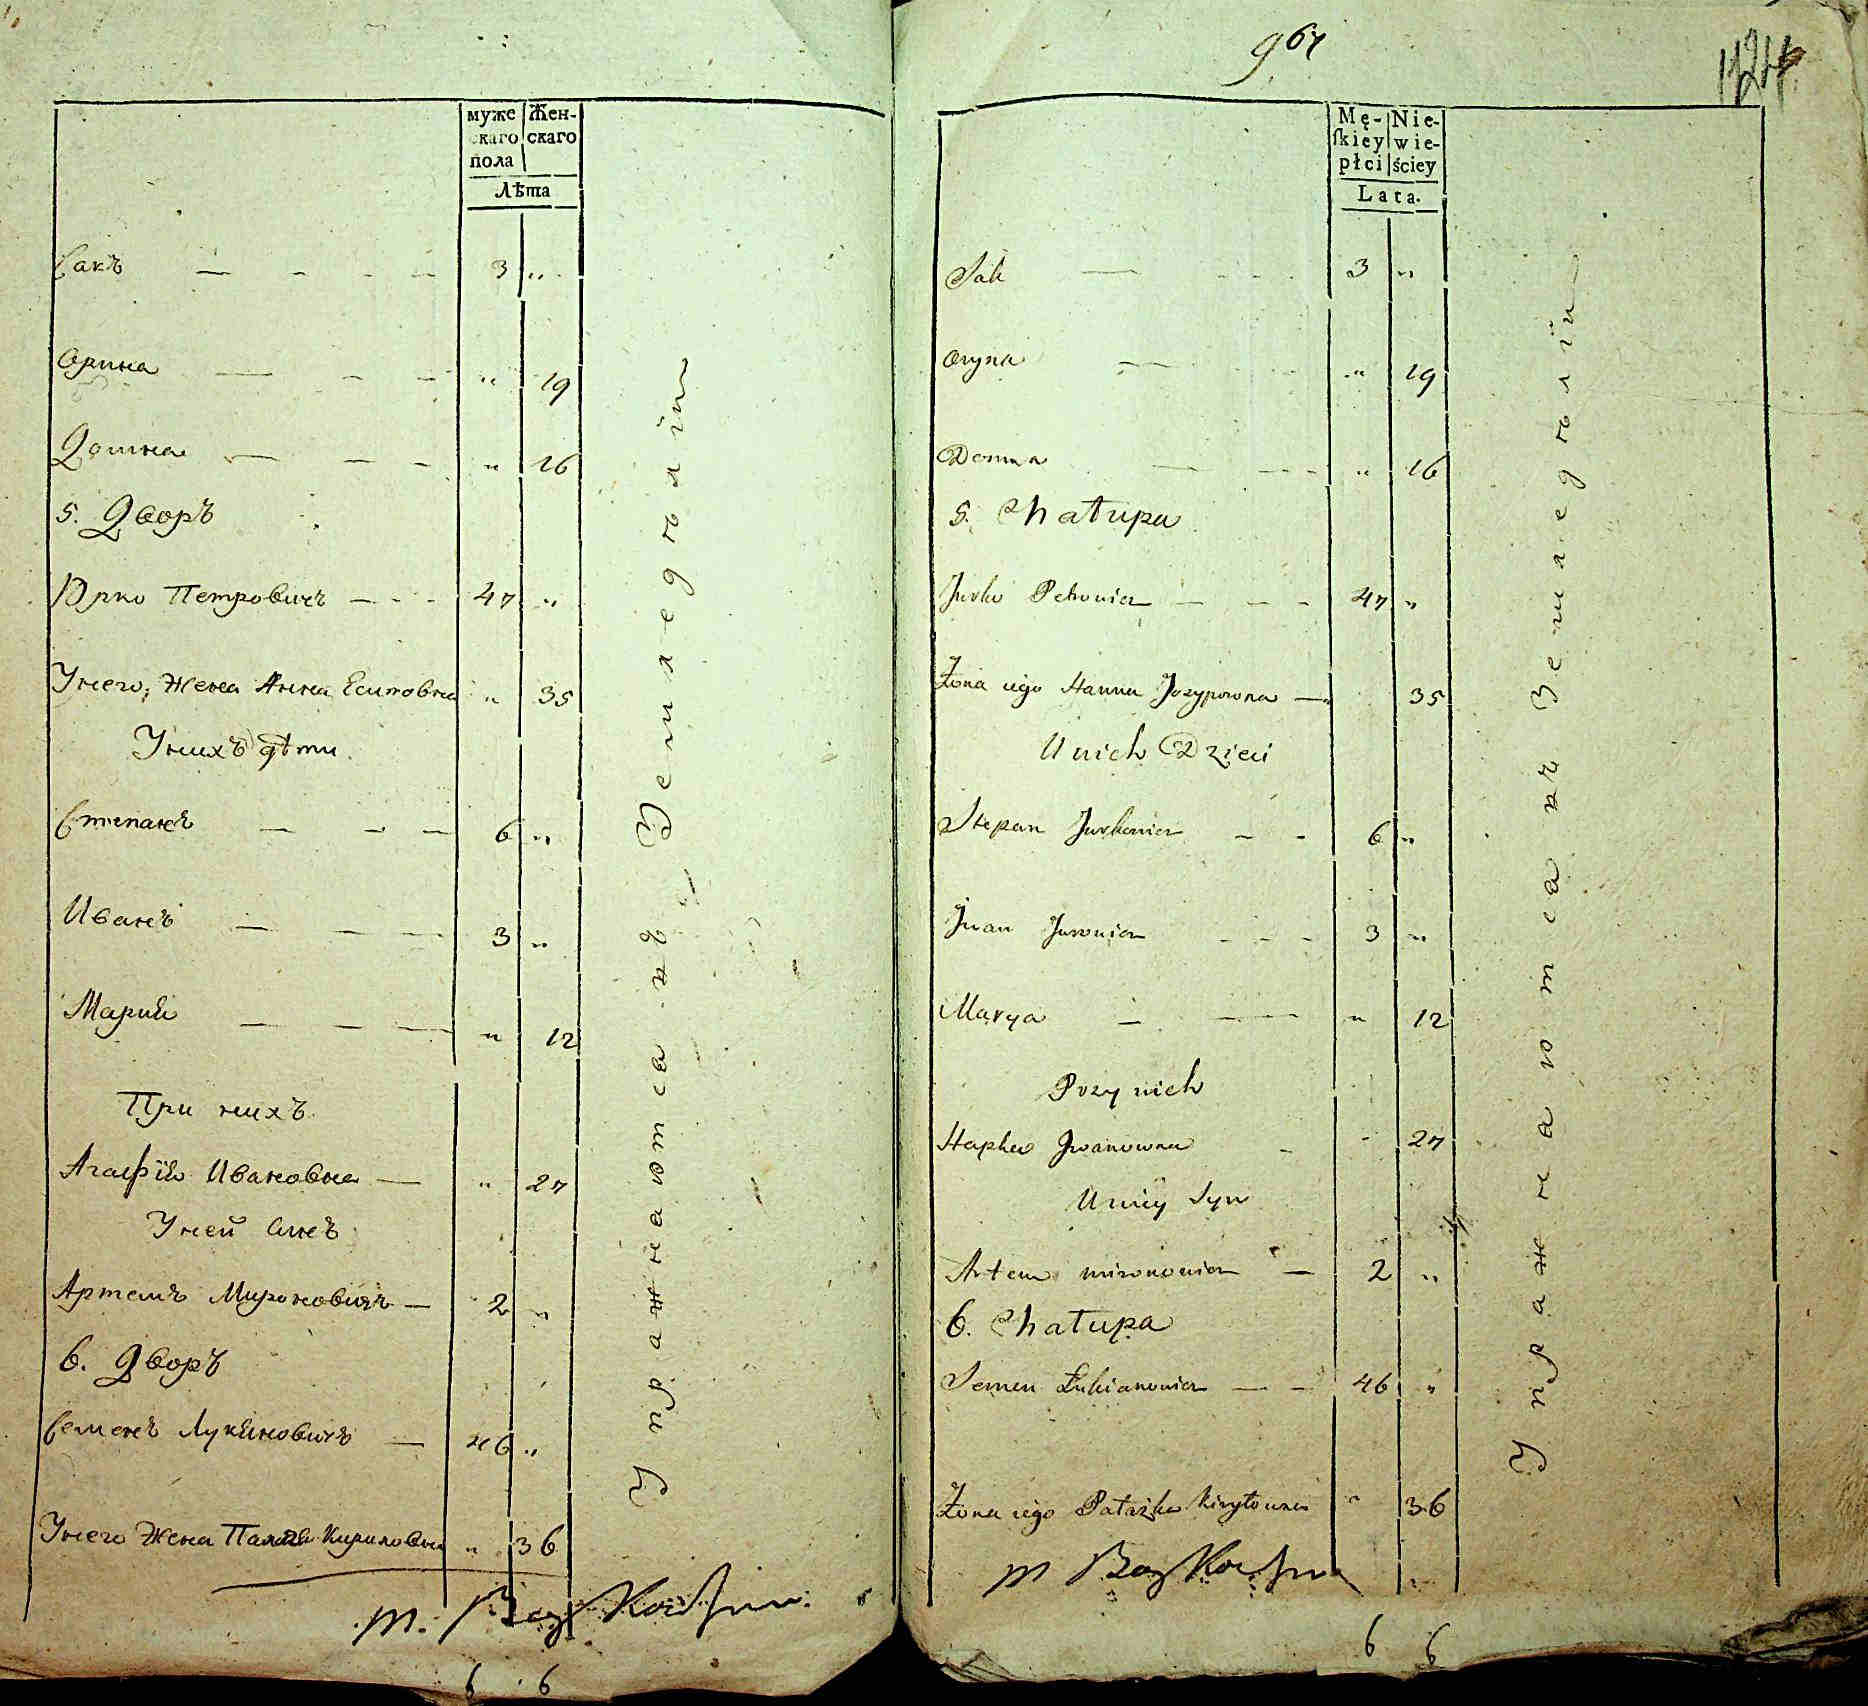 муже
скаго
пола
Жен-
скаго
Лѣта
Сакъ — - - - 3 „
Орина — - - „ 19
Домна — - - „ 16
5. Дворъ
Юрко Петровичъ - - - 47 „
Унего, Жена Анна Есиповна „ 35
Унихъ дѣти
Степанъ — - — 6 „
Иванъ — - — 3 „
Мария — - — „ 12
При нихъ
Агафия Ивановна — „ 27
Уней Сынъ
Артемъ Мироновичъ — 2 „
6. Дворъ
Семенъ Лукяновичъ — 46 „
Унего Жена Палагея Кирилов­на „ 36
Упражнаютса къ Земледѣлiи
m.
6 6
967
124
Mę-
skiey
płci
Nie-
wie-
ściey
Lata.
Sak — - - - 3 „
Oryna — - - „ 19
Domna — - - - „ 16
5. Chałupa
Jurko Petrowicz — - - 47 „
Żona iego Hanna Jozypowna — 35
U nich Dzieci
Stepan Jurkowicz - - 6 „
Jwan Jurowicz - - - 3 „
Marya — - — „ 12
Przy nich
Hapka Jwanowna - 27
U niey Syn
Artem mironowicz — 2 „
6. Chałupa
Semen Łukianowicz — - 46 „
Żona iego Pałażka Kiryłowna „ 36
Упражнаютса къ Земледѣлiи
m
6 6